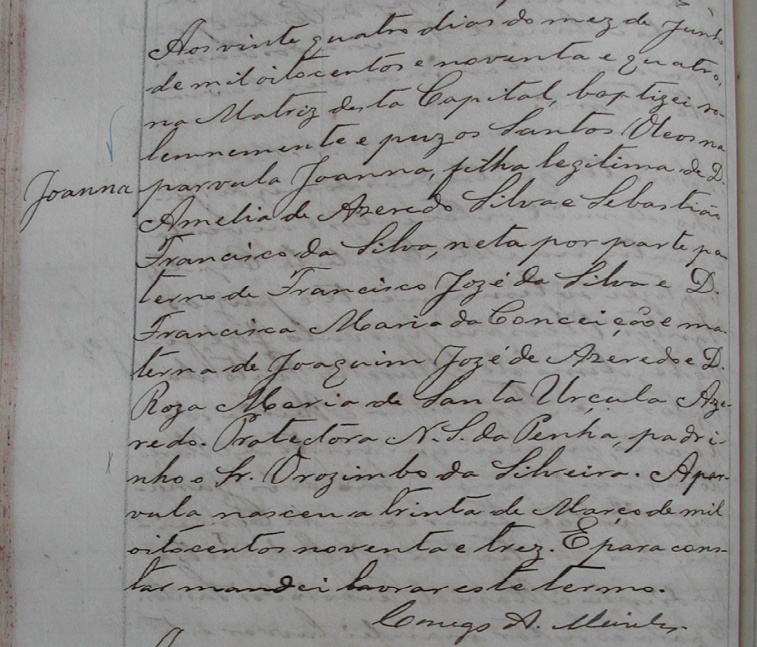 Aos vinte quatro dias do mez de Junho
de mil oitocentos e noventa e quatro,
na Matriz desta Capital, baptizei so-
lemnemente e puz os Santos Oleos na
Joanna parvula Joanna, filha legitima de D.
Amelia de Azeredo Silva e Sebastião
Francisco da Silva, neta por parte pa
terna de Francisco Jozé da Silva e D.
Francisca Maria da Conceição e ma
terna de Joaquim Jozé de Azeredo e D.
Roza Maria de Santa Urçula Aze-
redo. Protectora N. S. da Penha, padri-
nho o Sr. Orozimbo da Silveira. A par-
vula nasceu a trinta de Março de mil
oitocentos noventa e trez. E para cons-
tar mandei lavrar este termo.
Conego A.